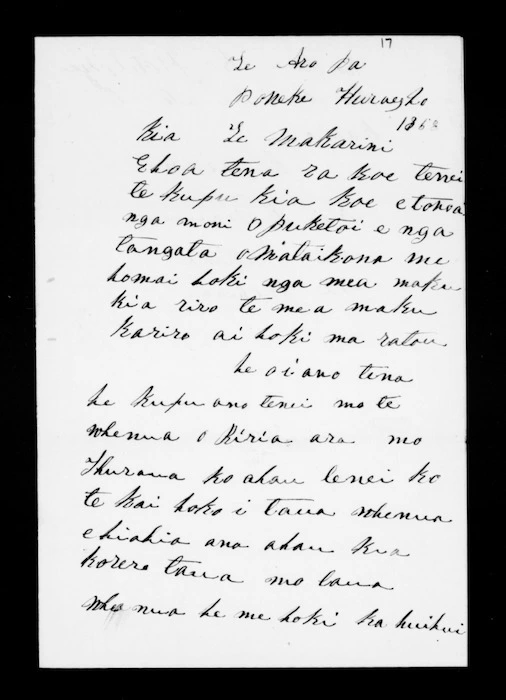 17
Te Aro Pa
Poneke Hurae
Kia Te Makarini
Ehoa tena ra koe tenei
te kupu kia koe etonoa
nga moni O puketoi e nga
tangata o Mataikona me
homai hoki nga mea maku
kia riro te mea maku
kariro ai hoki ma ratou
he oi ano tena
he kupu ano tenei mo te
whenua o Kiria ara mo
Ihuraua ko ahau tenei ko
te kai hoko i taua whenua
ehiahia ana ahau kia
korero taua mo taua
whenua he me hoki ka huihui